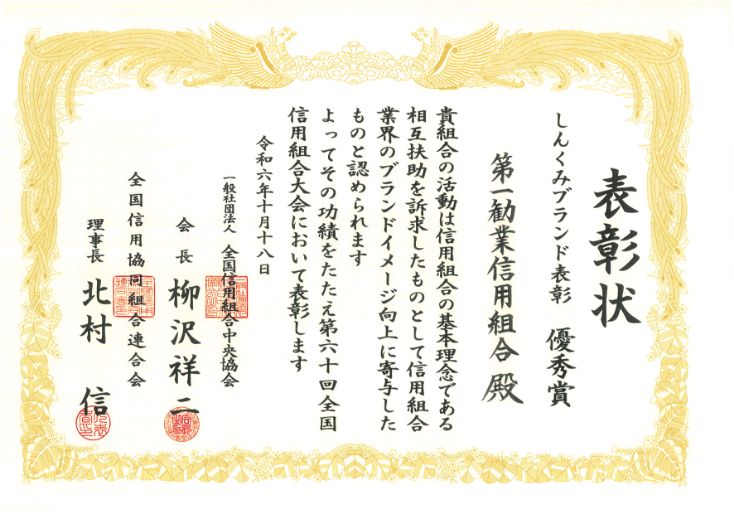 表彰状
しんくみブランド表彰 優秀賞
第一勧業信用組合 殿
貴組合の活動は信用組合の基本理念である
相互扶助を訴求したものとして信用組合
業界のブランドイメージ向上に寄与した
ものと認められます
よってその功績をたたえ第六十回全国
信用組合大会において表彰します
令和六年十月十八日
一般社団法人 全国信用組合中央協会
会長 柳沢祥二
全国信用協同組合連合会
理事長 北村信